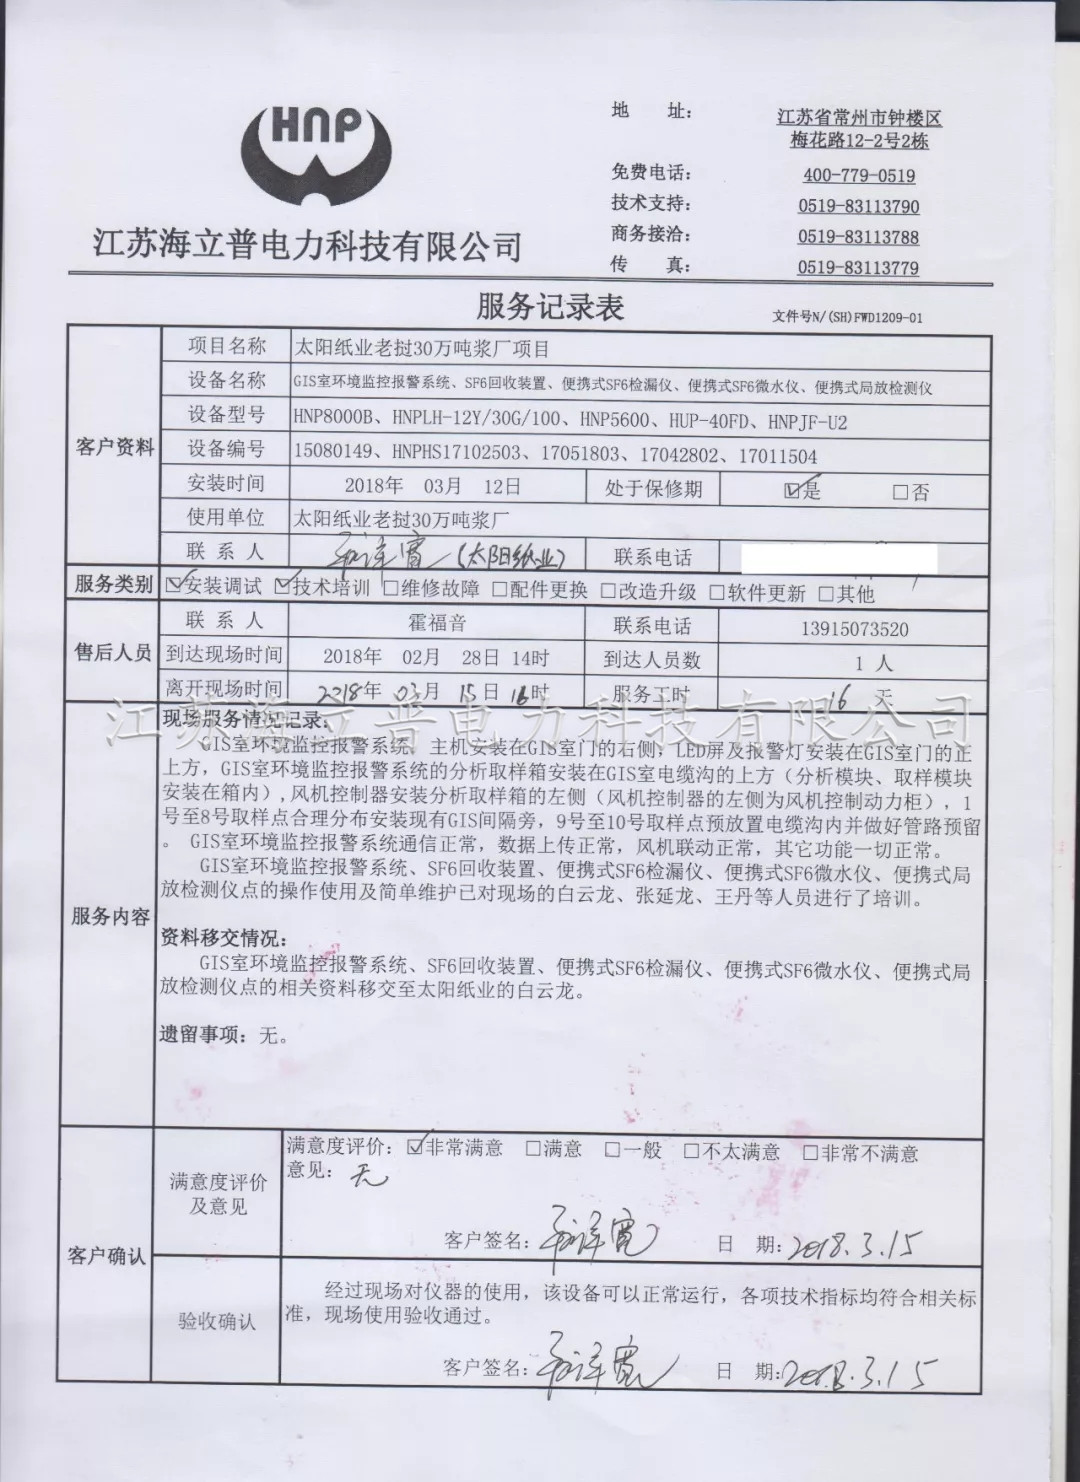 HNP
江苏海立普电力科技有限公司
地　　址：
江苏省常州市钟楼区
梅花路12-2号2栋
免费电话：
400-779-0519
技术支持：
0519-83113790
商务接洽：
0519-83113788
传　　真：
0519-83113779
服务记录表
文件号N/(SH)FWD1209-01
客户资料
项目名称
太阳纸业老挝30万吨浆厂项目
设备名称
GIS室环境监控报警系统、SF6回收装置、便携式SF6检漏仪、便携式SF6微水仪、便携式局放检测仪
设备型号
HNP8000B、HNPLH-12Y/30G/100、HNP5600、HUP-40FD、HNPJF-U2
设备编号
15080149、HNPHS17102503、17051803、17042802、17011504
安装时间
2018年　03月　12日
处于保修期
☑是　□否
使用单位
太阳纸业老挝30万吨浆厂
联 系 人
(太阳纸业)
联系电话
服务类别
☑安装调试 ☑技术培训 □维修故障 □配件更换 □改造升级 □软件更新 □其他
售后人员
联 系 人
霍福音
联系电话
13915073520
到达现场时间
2018年　02月　28日 14时
到达人员数
1 人
离开现场时间
2018年 03月 15日 16时
服务工时
16 天
江苏海立普电力科技有限公司
服务内容
现场服务情况记录：
GIS室环境监控报警系统、主机安装在GIS室门的右侧，LED屏及报警灯安装在GIS室门的正
上方，GIS室环境监控报警系统的分析取样箱安装在GIS室电缆沟的上方（分析模块、取样模块
安装在箱内）,风机控制器安装分析取样箱的左侧（风机控制器的左侧为风机控制动力柜），1
号至8号取样点合理分布安装现有GIS间隔旁，9号至10号取样点预放置电缆沟内并做好管路预留
。 GIS室环境监控报警系统通信正常，数据上传正常，风机联动正常，其它功能一切正常。
GIS室环境监控报警系统、SF6回收装置、便携式SF6检漏仪、便携式SF6微水仪、便携式局
放检测仪点的操作使用及简单维护已对现场的白云龙、张延龙、王丹等人员进行了培训。
资料移交情况：
GIS室环境监控报警系统、SF6回收装置、便携式SF6检漏仪、便携式SF6微水仪、便携式局
放检测仪点的相关资料移交至太阳纸业的白云龙。
遗留事项：无。
客户确认
满意度评价
及意见
满意度评价：☑非常满意　□满意　□一般　□不太满意　□非常不满意
意见：无
客户签名：
日　期：2018.3.15
验收确认
经过现场对仪器的使用，该设备可以正常运行，各项技术指标均符合相关标
准，现场使用验收通过。
客户签名：
日　期：2018.3.15